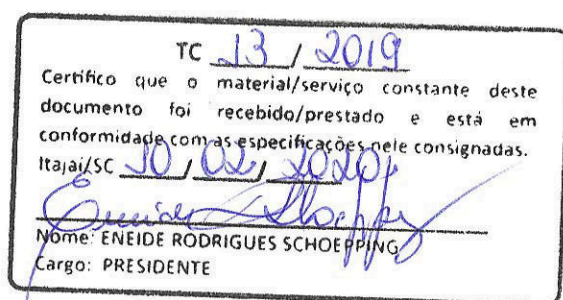 TC 13 / 2019
Certifico que o material/serviço constante deste
documento foi recebido/prestado e está em
conformidade com as especificações nele consignadas.
Itajaí/SC 10 / 02 / 2020
Nome: ENEIDE RODRIGUES SCHOEPPING
Cargo: PRESIDENTE